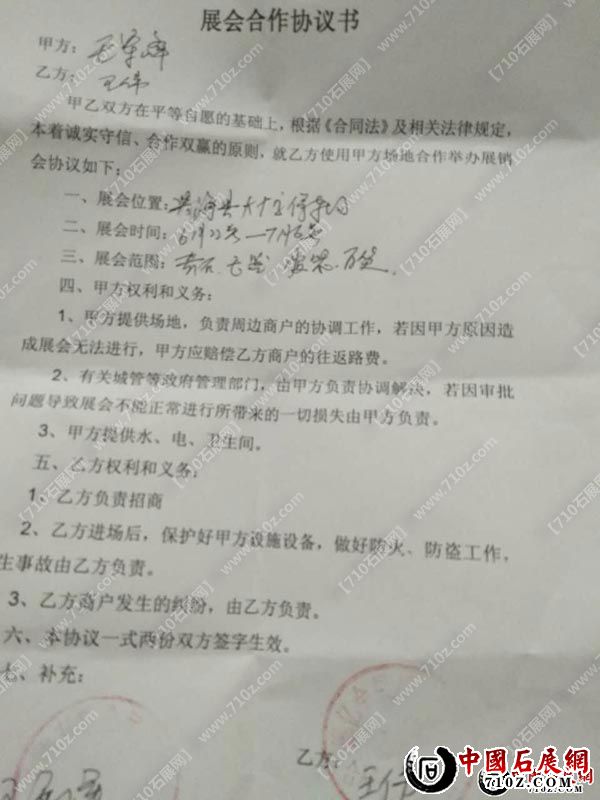 展会合作协议书
甲方:
乙方: 王伟
甲乙双方在平等自愿的基础上,根据《合同法》及相关法律规定,
本着诚实守信、合作双赢的原则,就乙方使用甲方场地合作举办展销
会协议如下:
一、展会位置:
二、展会时间: 6月22号—7月
三、展会范围: 奇石
四、甲方权利和义务:
1、甲方提供场地,负责周边商户的协调工作,若因甲方原因造
成展会无法进行,甲方应赔偿乙方商户的往返路费。
2、有关城管等政府管理部门,由甲方负责协调解决,若因审批
问题导致展会不能正常进行所带来的一切损失由甲方负责。
3、甲方提供水、电、卫生间。
五、乙方权利和义务:
1、乙方负责招商
2、乙方进场后,保护好甲方设施设备,做好防火、防盗工作,
生事故由乙方负责。
3、乙方商户发生的纠纷,由乙方负责。
六、本协议一式两份双方签字生效。
七、补充:
乙方:
中國石展網
www.710z.com
【710石展网】 www.710z.com